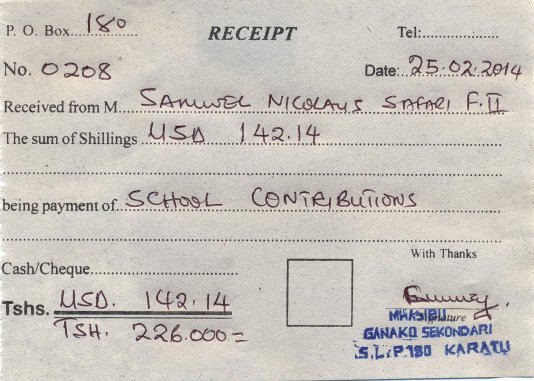 P. O. Box 180 RECEIPT Tel:
No. 0208 Date: 25.02.2014
Received from M SAMWEL NICOLAUS SAFARI F.II
The sum of Shillings USD 142.14
being payment of SCHOOL CONTRIBUTIONS
With Thanks
Cash/Cheque
Tshs. USD. 142.14
TSH. 226.000=
Signature
MHASIBU
GANAKO SEKONDARI
S.L.P.180 KARATU